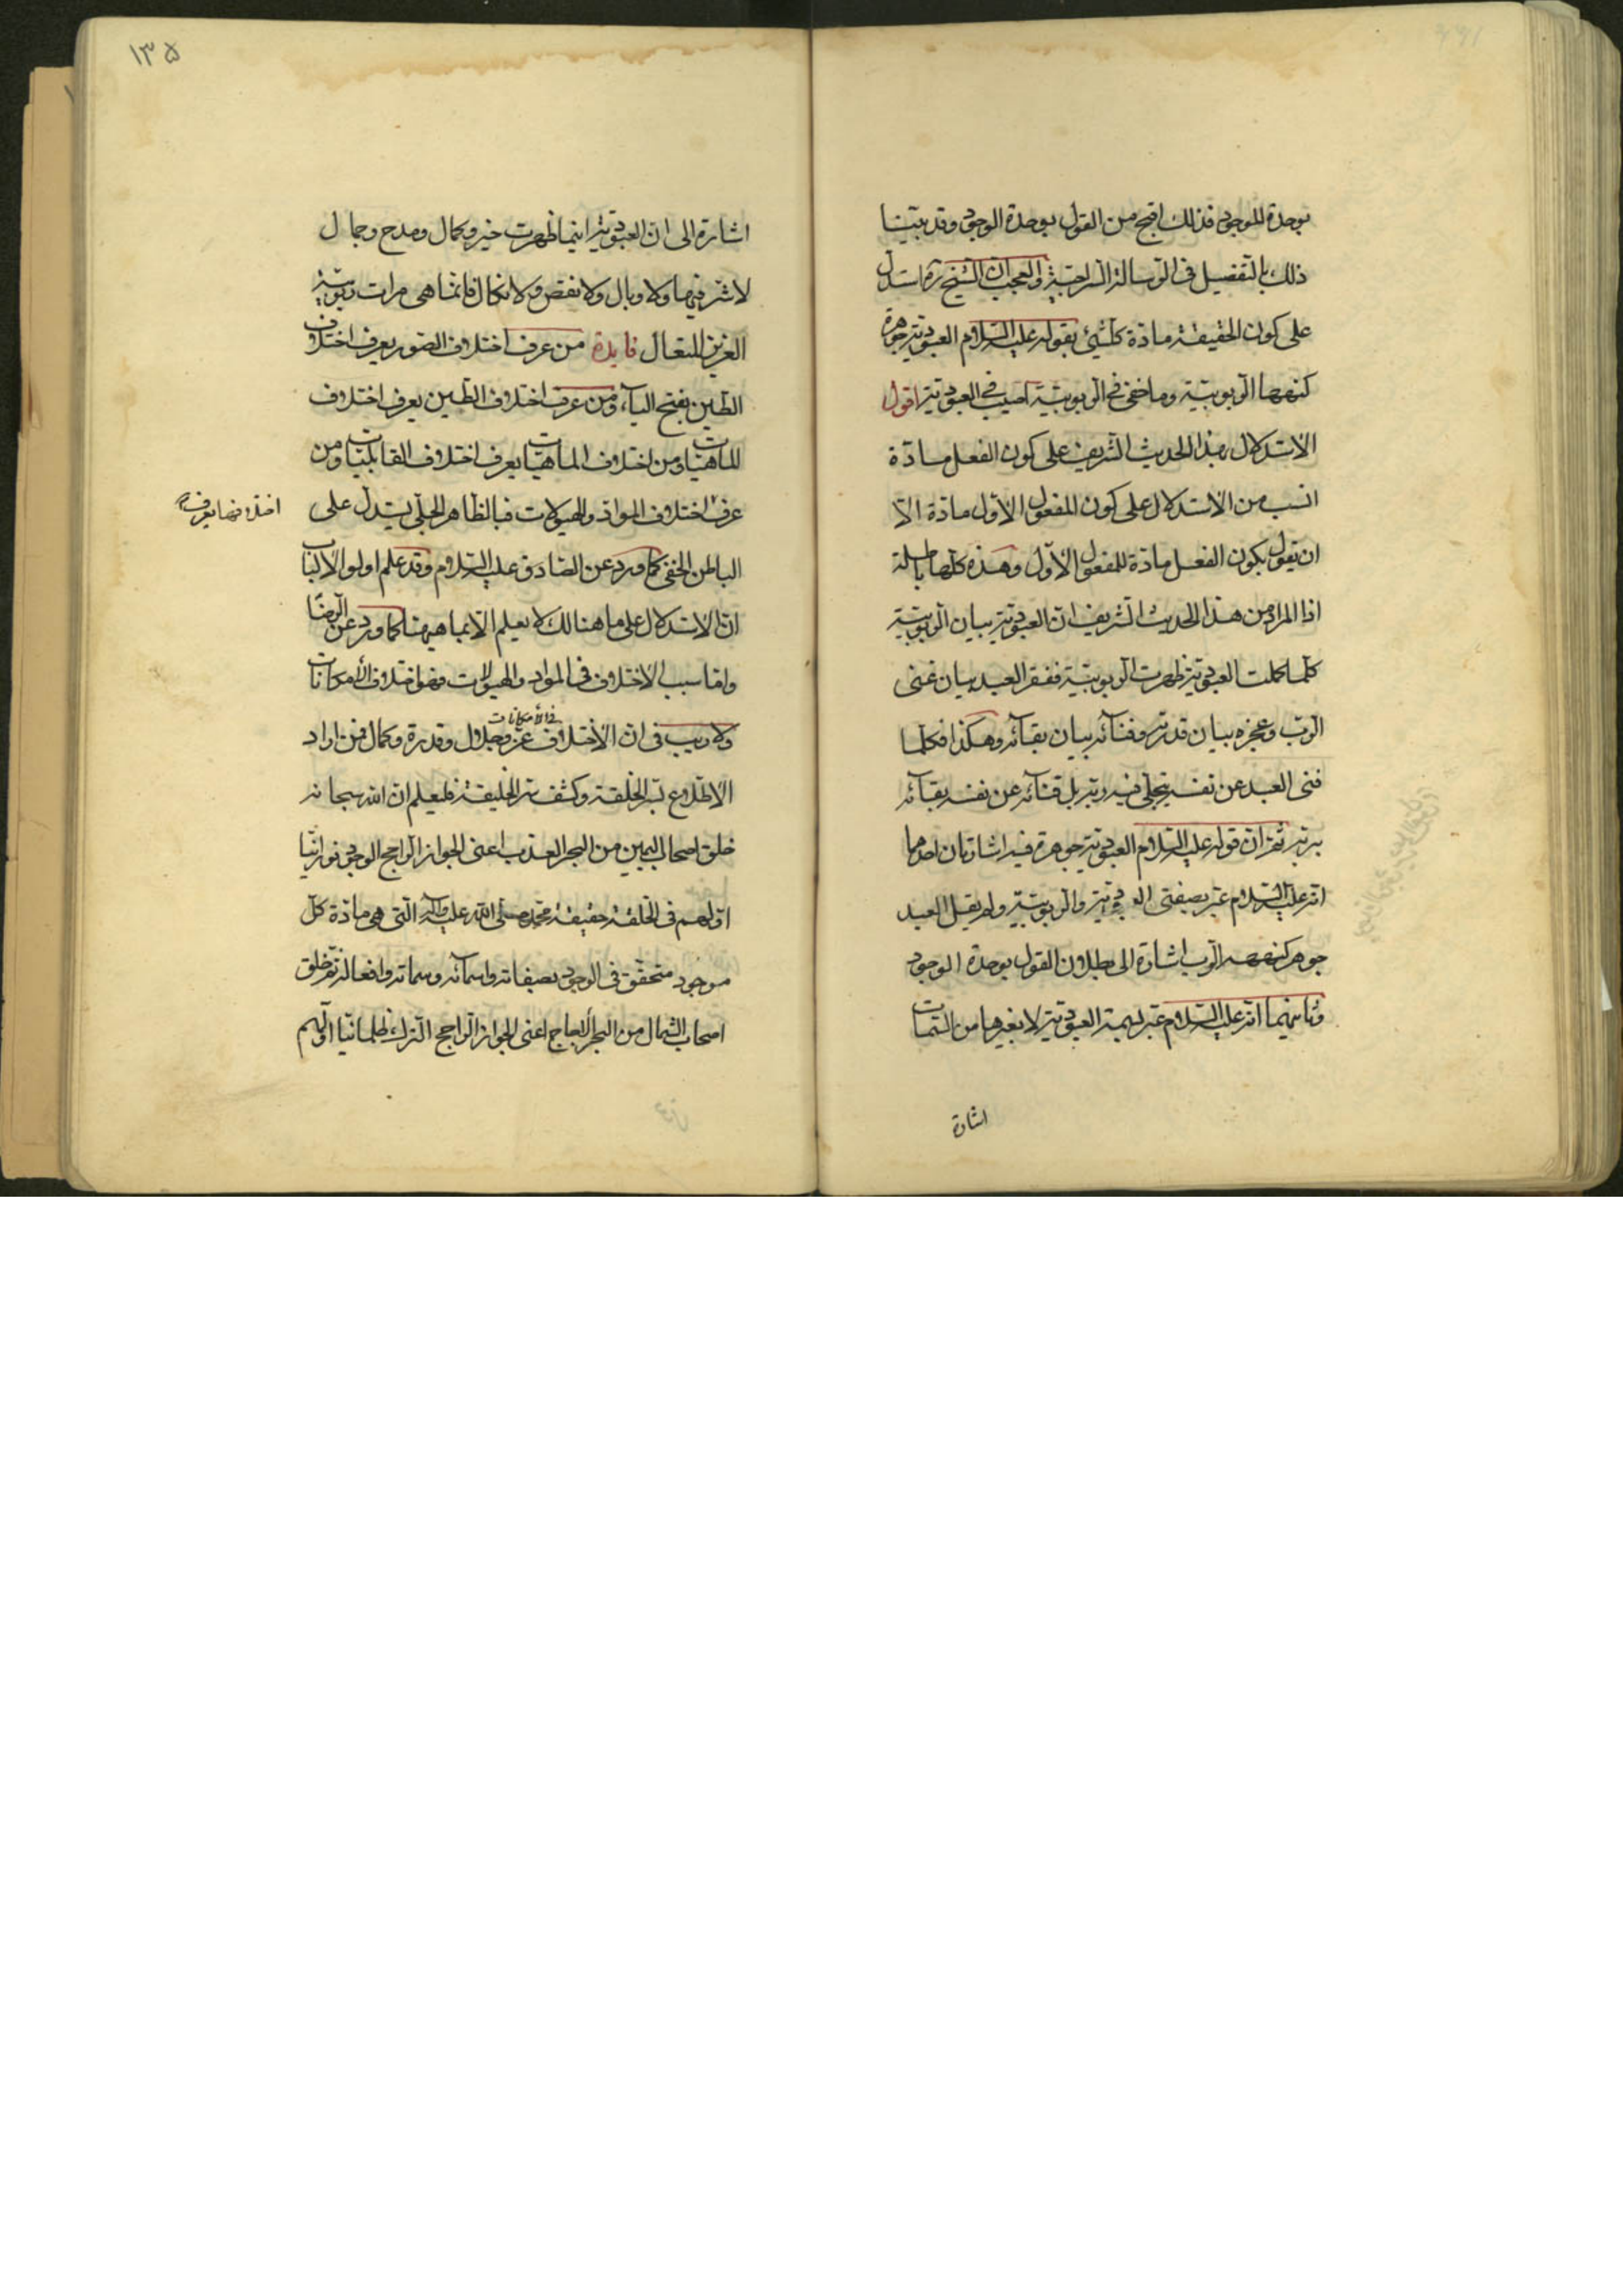 بوحدة الموجود فذلك اقبح من القول بوحدة الوجود وقد بيّنا
ذلك بالتفصيل فى الرسالة السراجيّة والعجب ان الشيخ ره استدل
على كون الحقيقة مادّة كلشيئ بقوله عليه السّلام العبوديّة جوهرة
كنهها الرّبوبيّة وما خفى فى الرّبوبيّة اصيب فى العبوديّة اقول
الاستدلال بهذا الحديث الشريف على كون الفعل مادّة
انسب من الاستدلال على كون المفعول الاوّل مادّة الّا
ان يقول بكون الفعل مادّة للمفعول الاوّل وهذه كلّها باطلة
اذا المراد من هذا الحديث الشريف انّ العبوديّة بيان الرّبوبيّة
كلّما كملت العبوديّة ظهرت الرّبوبيّة ففقر العبد بيان غنى
الرّب وعجزه بيان قدرته وفنآئه بيان بقآئه وهكذا فكلّما
فنى العبد عن نفسه تجلّى فيه ربّه بل فنآئه عن نفسه بقآئه
بربّه ثمّ انّ قوله عليه السّلام العبوديّة جوهرة فيه اشارتان احدهما
انّه عليه السّلام عبّر بصفتى العبوديّة والرّبوبيّة ولم يقل العبد
جوهر كنهه الرّب اشارة الى بطلان القول بوحدة الوجود
وثانيهما انّه عليه السّلام عبّر بسمة العبوديّة لا بغيرها من السّمات
اشارة
١٣٥
اشارة الى ان العبوديّة اينما ظهرت خير وكمال ومدح وجمال
لا شرّ فيها ولا وبال ولا نقص ولا نكال فانّما هى مرات ربوبيّة
العزيز المتعال فايدة من عرف اختلاف الصّور يعرف اختلاف
الطّين بفتح اليآء ومن عرف اختلاف الطّين يعرف اختلاف
الماهيّات ومن اختلاف الماهيّات يعرف اختلاف القابليّات ومن
اختلافها يعرف
عرف اختلاف الموادّ والهيولات فبالظّاهر الجلّى يستدلّ على
الباطن الخفى كما ورد عن الصّادق عليه السّلام وقد علم اولوا الالباب
انّ الاستدلال على ما هنالك لا يعلم الّا بما هيهنا كما ورد عن الرّضا
وامّا سبب الاختلاف فى الموادّ والهيولات فهو اختلاف الأمكانات
فى الأمكانات
ولا ريب فى انّ الأختلاف عزّ وجلال وقدرة وكمال فمن اراد
الاطّلاع بسرّ الخلقة وكشف سرّ الخليقة فليعلم ان الله سبحانه
خلق اصحاب اليمين من البحر العذب اعنى الجواز الرّاجح الوجود نورانيّا
اوّلهم فى الخلقة حقيقة محمّد صلّى الله عليه وآله الّتى هى مادّة كلّ
موجود متحقّق فى الوجود بصفاته واسمآئه وسماته وافعاله ثمّ خلق
اصحاب الشمال من البحر الاجاج اعنى الجواز الرّاجح الترك ظلمانيّا اوّلهم